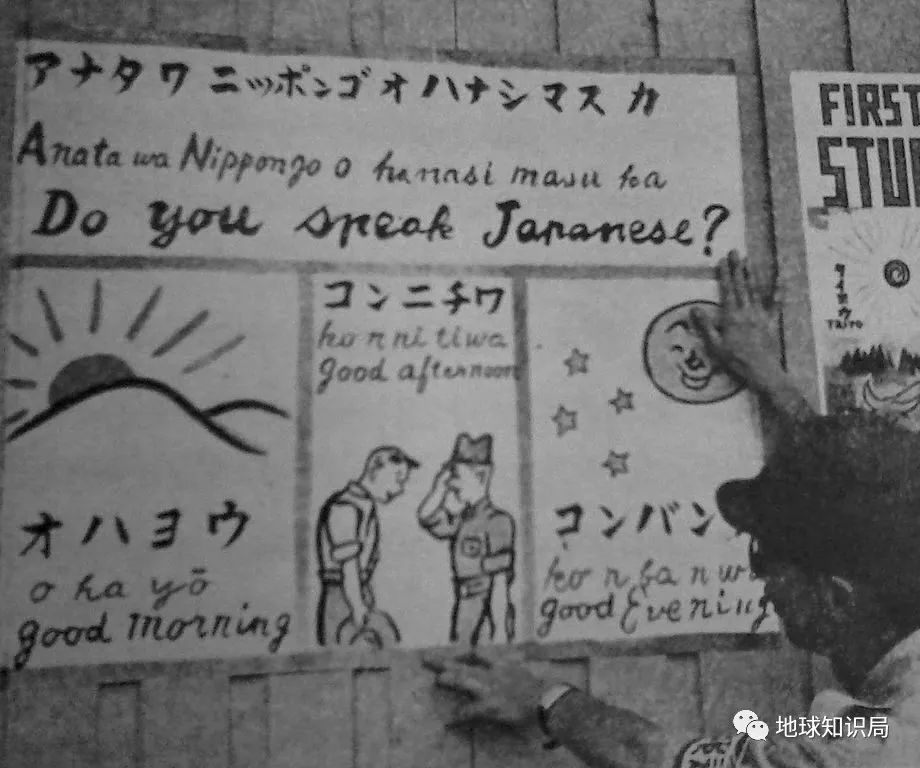 アナタワニッポンゴオハナシマスカ
Anata wa Nippongo o hanasi masu ka
Do you speak Japanese?
オハヨウ
o ha yō
good morning
コンニチワ
ko n ni ti wa
good afternoon
コンバン
ko n ba n wa
good Evening
FIRST
STU
タイヨウ
TAIYO
地球知识局